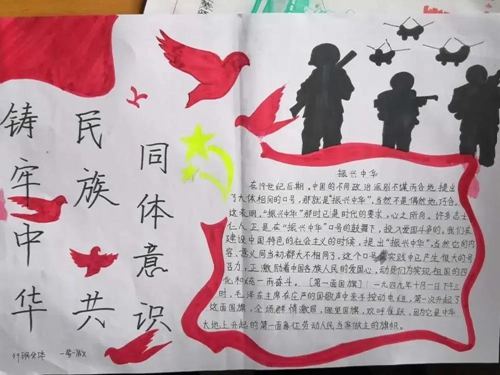 铸牢中华
民族共
同体意识
振兴中华
在19世纪后期,中国的不同政治派别不谋而合地,提出
了大体相同的口号,那就是"振兴中华",当然不是偶然地,巧合。
这表明,"振兴中华"那时已是时代的要求,心之所向。许多志士
仁人正是在"振兴中华"的口号的鼓舞下,投入爱国斗争的。我们在
建设中国特色的社会主义的时候,提出"振兴中华",当然它的内
容,意义同当初都大不相同了,这个口号 实践中已产生很大的号
召力,正激励着中国各族人民的爱国心,动员们为实现祖国的四
化和统一而奋斗。[第一面国旗]一九四九年十月一日下午三
时,毛泽东主席在庄严的国歌声中亲手按动电钮,第一次升起了
这面国旗,全场群情激 ,瞩望国旗,欢呼雀跃,因为它是中华
大地上升起的第一面象征劳动人民当家做主的旗帜。